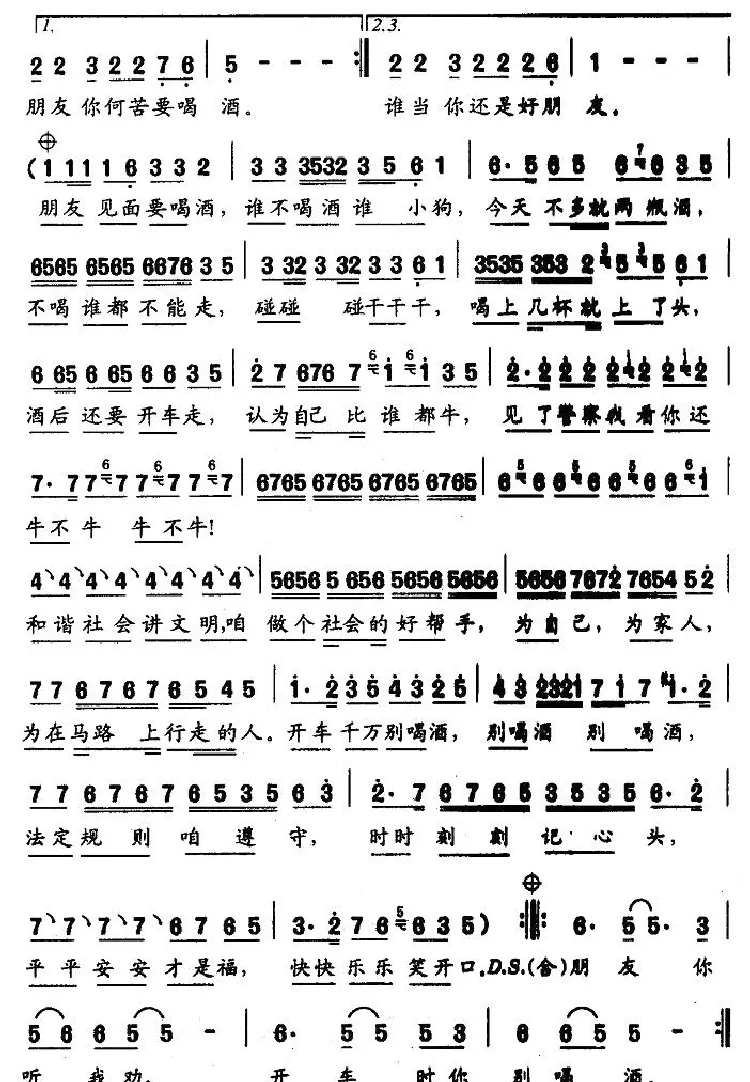 1. 2.3.
2 2 3 2 2 7 6 | 5 - - - :|| 2 2 3 2 2 2 6 | 1 - - -
朋友 你何苦要喝 酒。 谁当 你还是好朋 友。
( 1 1 1 1 1 6 3 3 2 | 3 3 3532 3 5 6 1 | 6· 5 6 5 6 7 6 3 5
朋友 见面要喝酒, 谁不喝酒谁 小狗, 今天 不多就两瓶酒,
6565 6565 6676 3 5 | 3 32 3 32 3 3 6 1 | 3535 353 2 3 5 3 5 6 1
不喝 谁都 不能 走, 碰碰 碰干干干, 喝上 几杯就上了头,
6 65 6 65 6 6 3 5 | 2 7 676 7 6 1 6 1 3 5 | 2· 2 2 2 2 2 2 2 2
酒后 还要 开车走, 认为自己 比谁都牛, 见了警察我看你还
7· 7 7 6 7 7 6 7 7 6 7 | 6765 6765 6765 6765 | 6 5 6 6 5 6 6 5 6 6 5 1
牛不牛 牛不牛!
4 4 4 4 4 4 4 4 | 5656 5 656 5656 5656 | 5656 7672 7654 5 2
和谐社会讲文明,咱 做个社会的好帮手, 为自己,为家人,
7 7 6 7 6 7 6 5 4 5 | 1· 2 3 5 4 3 2 5 | 4 3 2321 7 1 7 1· 2
为在马路 上行走的人。 开车千万别喝酒, 别喝酒 别 喝 酒,
7 7 6 7 6 7 6 5 3 5 6 3 | 2· 7 6 7 6 5 3 5 3 5 6· 2
法定规 则 咱 遵 守, 时时刻刻 记 心头,
7 7 7 7 6 7 6 5 | 3· 2 7 6 5 6 3 5 ) :||: 6· 5 5· 3
平平安安才是福, 快快乐乐笑开口, D.S.(合)朋 友 你
5 6 6 5 5 - | 6· 5 5 5 3 | 6 6 5 5 - :||
听 我劝, 开 车 时你 别喝 酒。